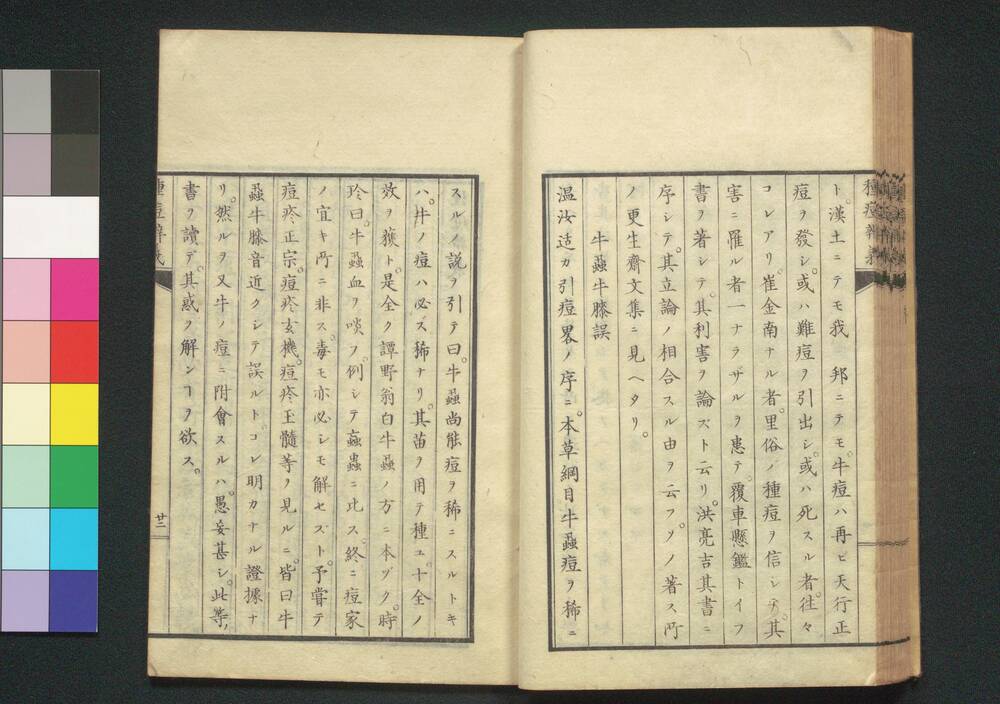 種痘辨義
ト。漢土ニテモ我　邦ニテモ。牛痘ハ再ヒ天行正
痘ヲ發シ。或ハ難痘ヲ引出シ。或ハ死スル者。往々
コレアリ。崔金南ナル者。里俗ノ種痘ヲ信シテ。其
害ニ罹ル者一ナラザルヲ患テ。覆車懸鑑トイフ
書ヲ著シテ。其利害ヲ論ズト云リ。洪亮吉其書ニ
序シテ。其立論ノ相合スル由ヲ云フ。ソノ著ス所
ノ更生齋文集ニ見ヘタリ。
牛蝨牛膝誤
温汝适カ引痘畧ノ序ニ。本草綱目牛蝨痘ヲ稀ニ
スルノ説ヲ引テ曰。牛蝨尚能痘ヲ稀ニスルトキ
ハ。牛ノ痘ハ必ス稀ナリ。其苗ヲ用テ種ユ。十全ノ
效ヲ獲ト。是全ク譚野翁白牛蝨ノ方ニ本ヅク。時
珍曰。牛蝨血ヲ啖フ。例シテ蝱蟲ニ比ス。終ニ痘家
ノ宜キ所ニ非ス。毒モ亦必シモ解セズト。予嘗テ
痘疹正宗。痘疹玄機。痘疹玉髓等ヲ見ルニ。皆曰牛
蝨牛膝音近クシテ誤ルト。コレ明カナル證據ナ
リ。然ルヲ又牛ノ痘ニ附會スルハ。愚妄甚シ。此等ノ
書ヲ讀テ。其惑ヲ解ンヿヲ欲ス。
廿二